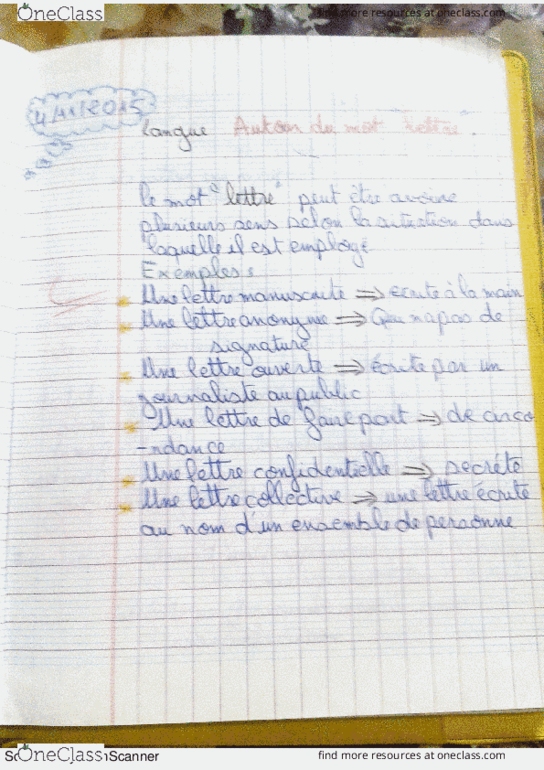 OneClass
find more resources at oneclass.com
4/11/2015
Langue Autour du mot lettre.
le mot "lettre" peut être avoire
plusieurs sens selon la situation dans
laquelle il est employé
Exemples :
Une lettre manuscrite ⇒ ecrite à la main
Une lettre anonyme ⇒ Qui n'a pas de
signature
Une lettre ouverte ⇒ écrite par un
journaliste au public
Une lettre de faire part ⇒ de
-ndance
Une lettre confidentielle ⇒ secréte
Une lettre collective ⇒ une lettre écrite
au nom d'un ensemble de personne
OneClass Scanner
find more resources at oneclass.com